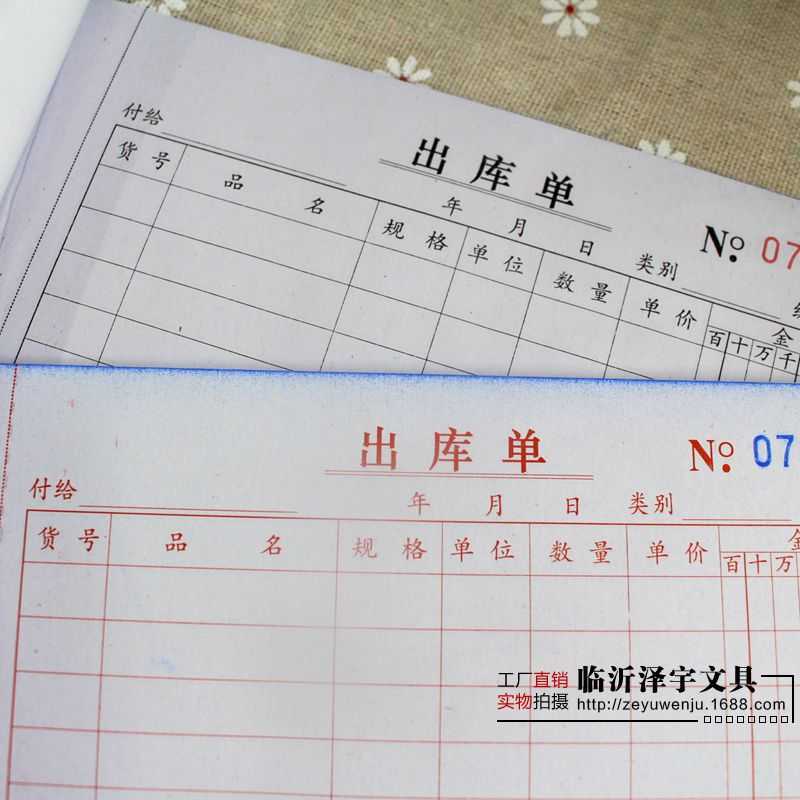 付给
出库单
年 月 日 类别
No. 07
货号 品名 规格 单位 数量 单价 金
百 十 万 千
出库单
No. 07
付给 年 月 日 类别
货号 品名 规格 单位 数量 单价 金
百 十 万
工厂直销
实物拍摄
临沂泽宇文具
http://zeyuwenju.1688.com